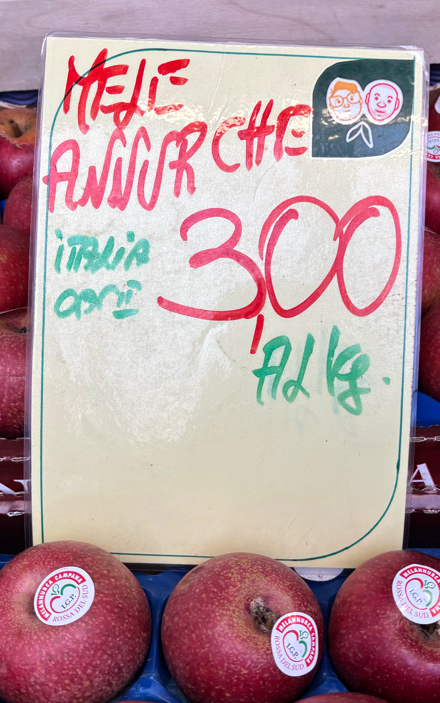 MELE
ANNURCHE
ITALIA
3,00
CAT II
AL Kg.
MELANNURCA CAMPANA
I.G.P.
ROSSA DEL SUD
MELANNURCA CAMPANA
I.G.P.
ROSSA DEL SUD
MELANNURCA CAMPANA
I.G.P.
ROSSA DEL SUD